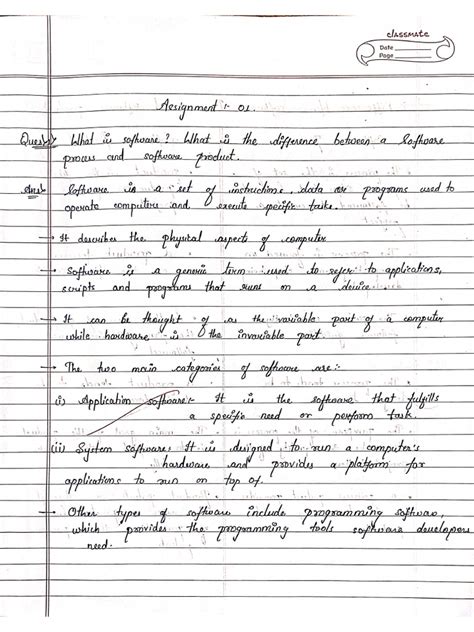 classmate
Date
Page
Assignment :- 01
Ques:1) What is software? What is the difference between a software
process and software product.
Ans:- Software is a set of instructions, data or programs used to
operate computers and execute specific tasks.
→ It describes the physical aspects of computer
→ Software is a generic term used to refer to applications,
scripts and programs that runs on a device.
→ It can be thought of as the variable part of a computer
while hardware is the invariable part.
→ The two main categories of software are:-
(i) Application software:- It is the software that fulfills
a specific need or perform task.
(ii) System software: It is designed to run a computer's
hardware and provides a platform for
applications to run on top of.
→ Other types of software include programming software,
which provides the programming tools software developers
need.